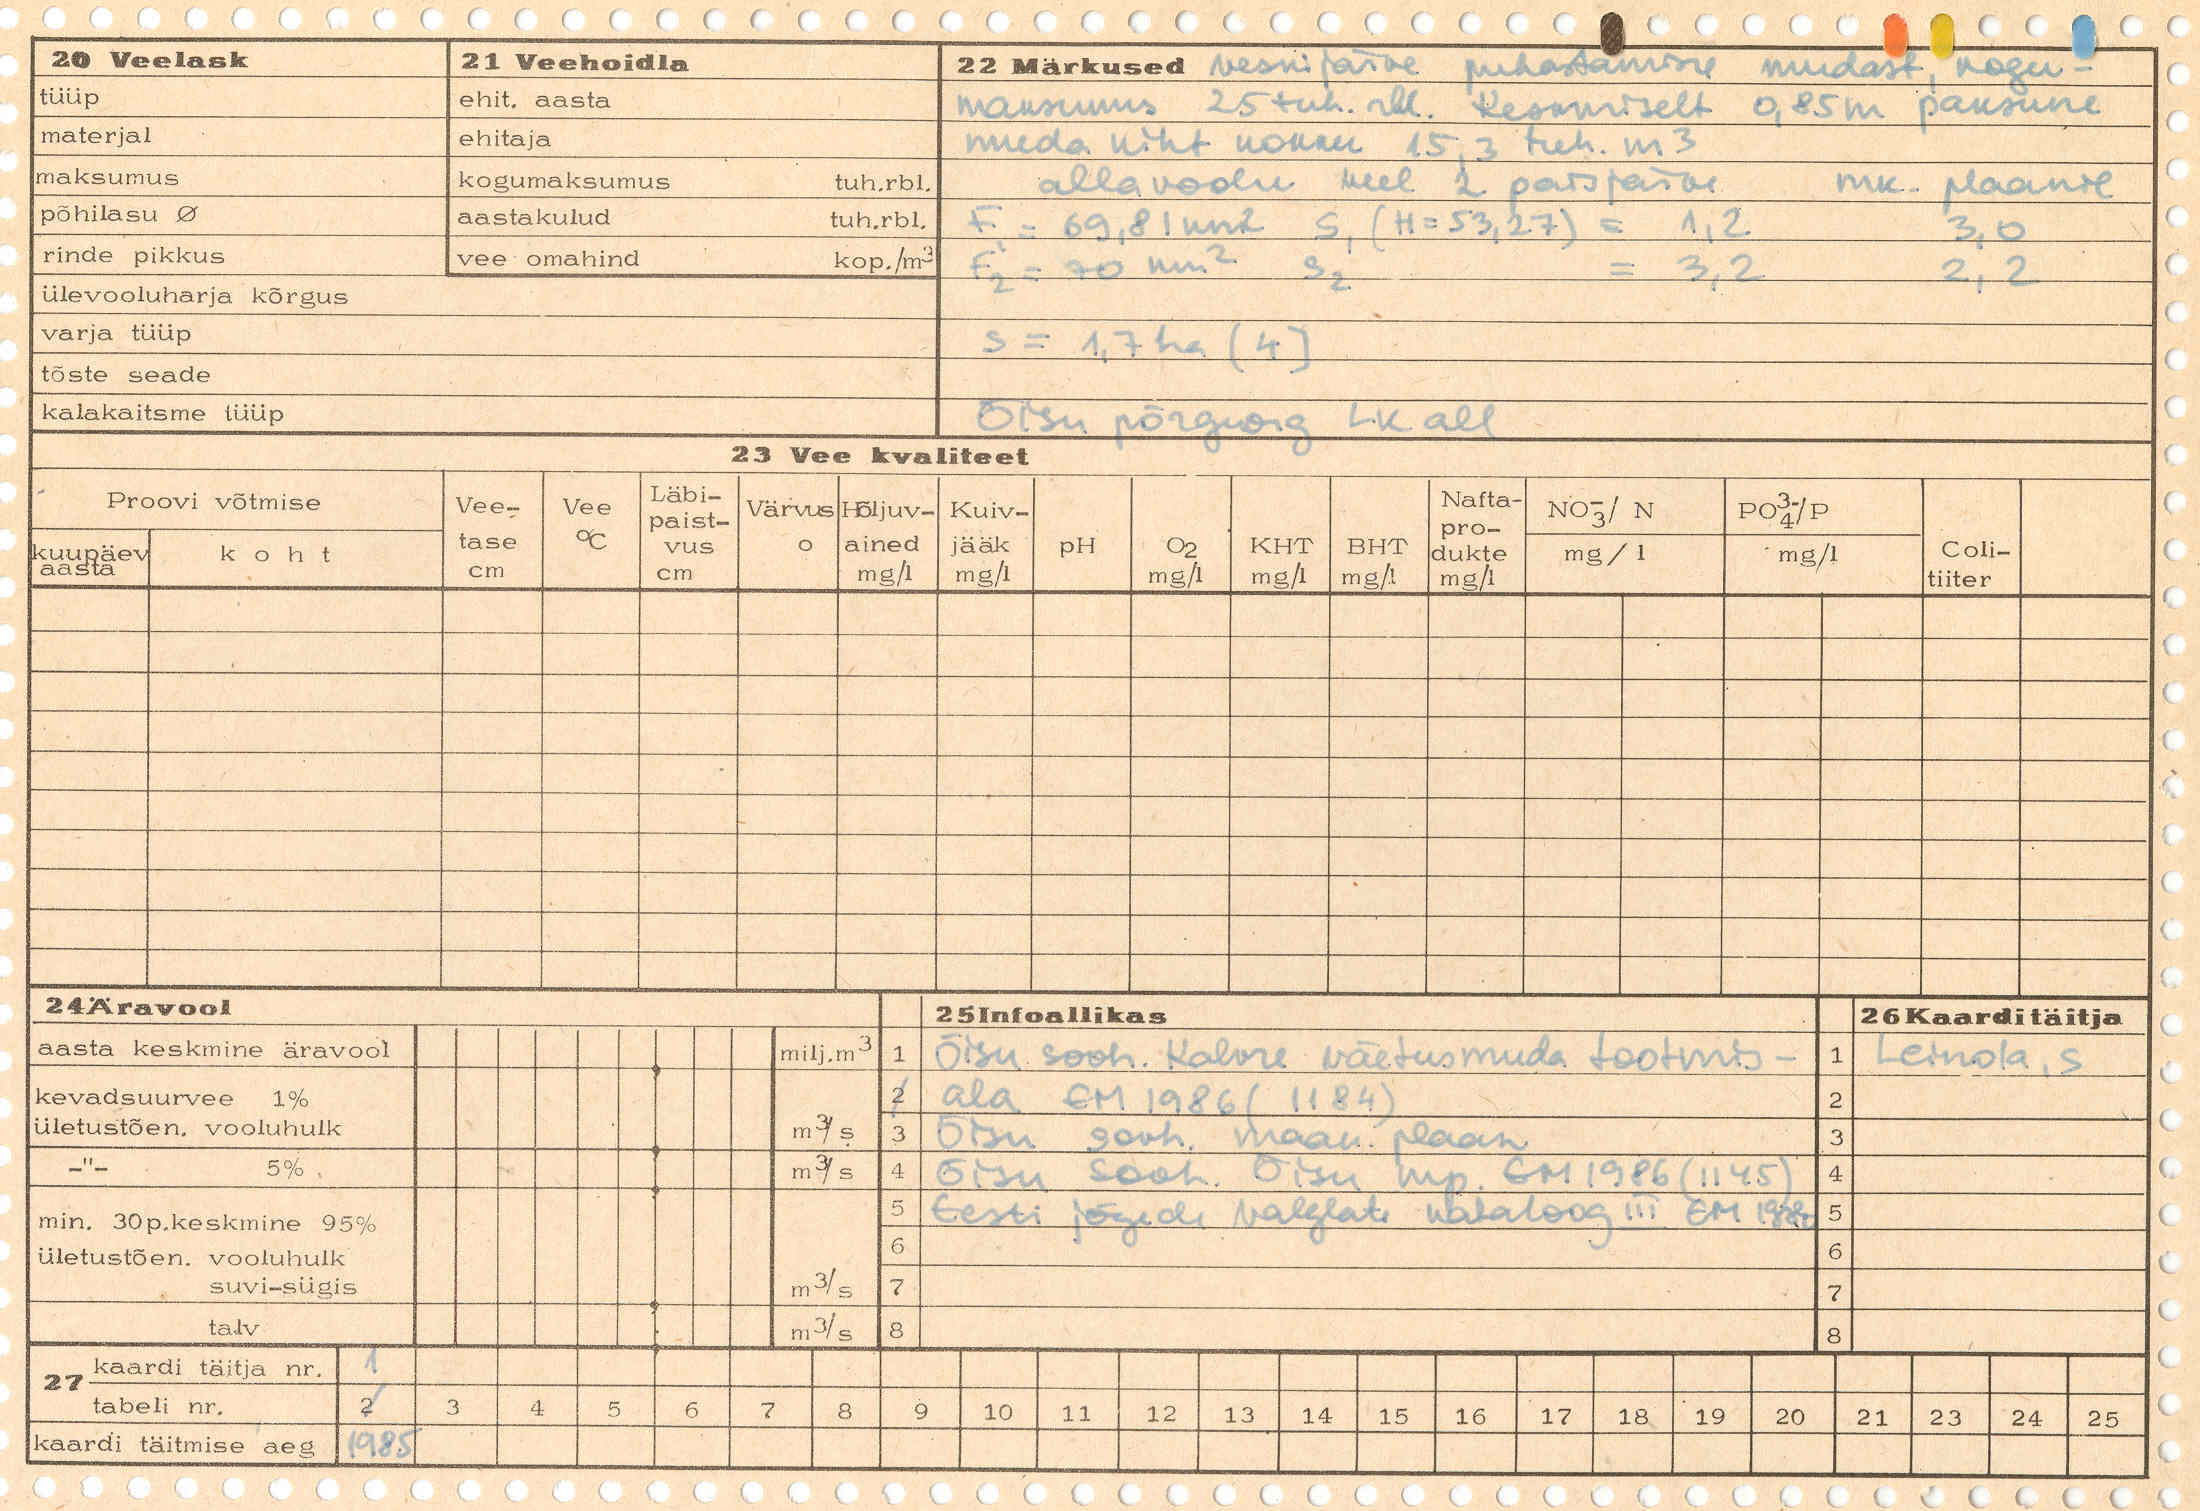 20 Veelask
tüüp
materjal
maksumus
põhilasu Ø
rinde pikkus
ülevooluharja kõrgus
varja tüüp
tõste seade
kalakaitsme tüüp
21 Veehoidla
ehit. aasta
ehitaja
kogumaksumus tuh.rbl.
aastakulud tuh.rbl.
vee omahind kop./m3
22 Märkused veskijärve puhastamise mudast, kogu-
maksumus 25 tuh. rbl. Keskmiselt 0,85m paksune
muda kiht kokku 15,3 tuh. m3
allavoolu veel 2 paisjärve mk. plaanil
F1 = 69,81 km2 S1 (H=53,27) = 1,2 3,0
F2 = 70 km2 S2 = 3,2 2,2
S = 1,7 ha (4)
Õisu põrguorg LK all
23 Vee kvaliteet
Proovi võtmise
kuupäev aasta
koht
Vee-tase cm
Vee °C
Läbi-paist-vus cm
Värvus o
Hõljuv-ained mg/l
Kuiv-jääk mg/l
pH
O2 mg/l
KHT mg/l
BHT mg/l
Nafta-pro-dukte mg/l
NO3-/ N mg/l
PO4 3-/P mg/l
Coli-tiiter
24 Äravool
aasta keskmine äravool milj.m3
kevadsuurvee 1%
ületustõen. vooluhulk m3/s
-"- 5% m3/s
min. 30p.keskmine 95%
ületustõen. vooluhulk
suvi-sügis m3/s
talv m3/s
25 Infoallikas
1 Õisu sooh. Kalvre väetusmuda tootmis-
2 ala EM 1986 (1184)
3 Õisu sovh. maak. plaan
4 Õisu sooh. Õisu mp. EM 1986 (1145)
5 Eesti jõgede valglate kataloog III EM
6
7
8
26 Kaarditäitja
1 Leinola, S
2
3
4
5
6
7
8
27 kaardi täitja nr. 1
tabeli nr. 2 3 4 5 6 7 8 9 10 11 12 13 14 15 16 17 18 19 20 21 23 24 25
kaardi täitmise aeg 1985